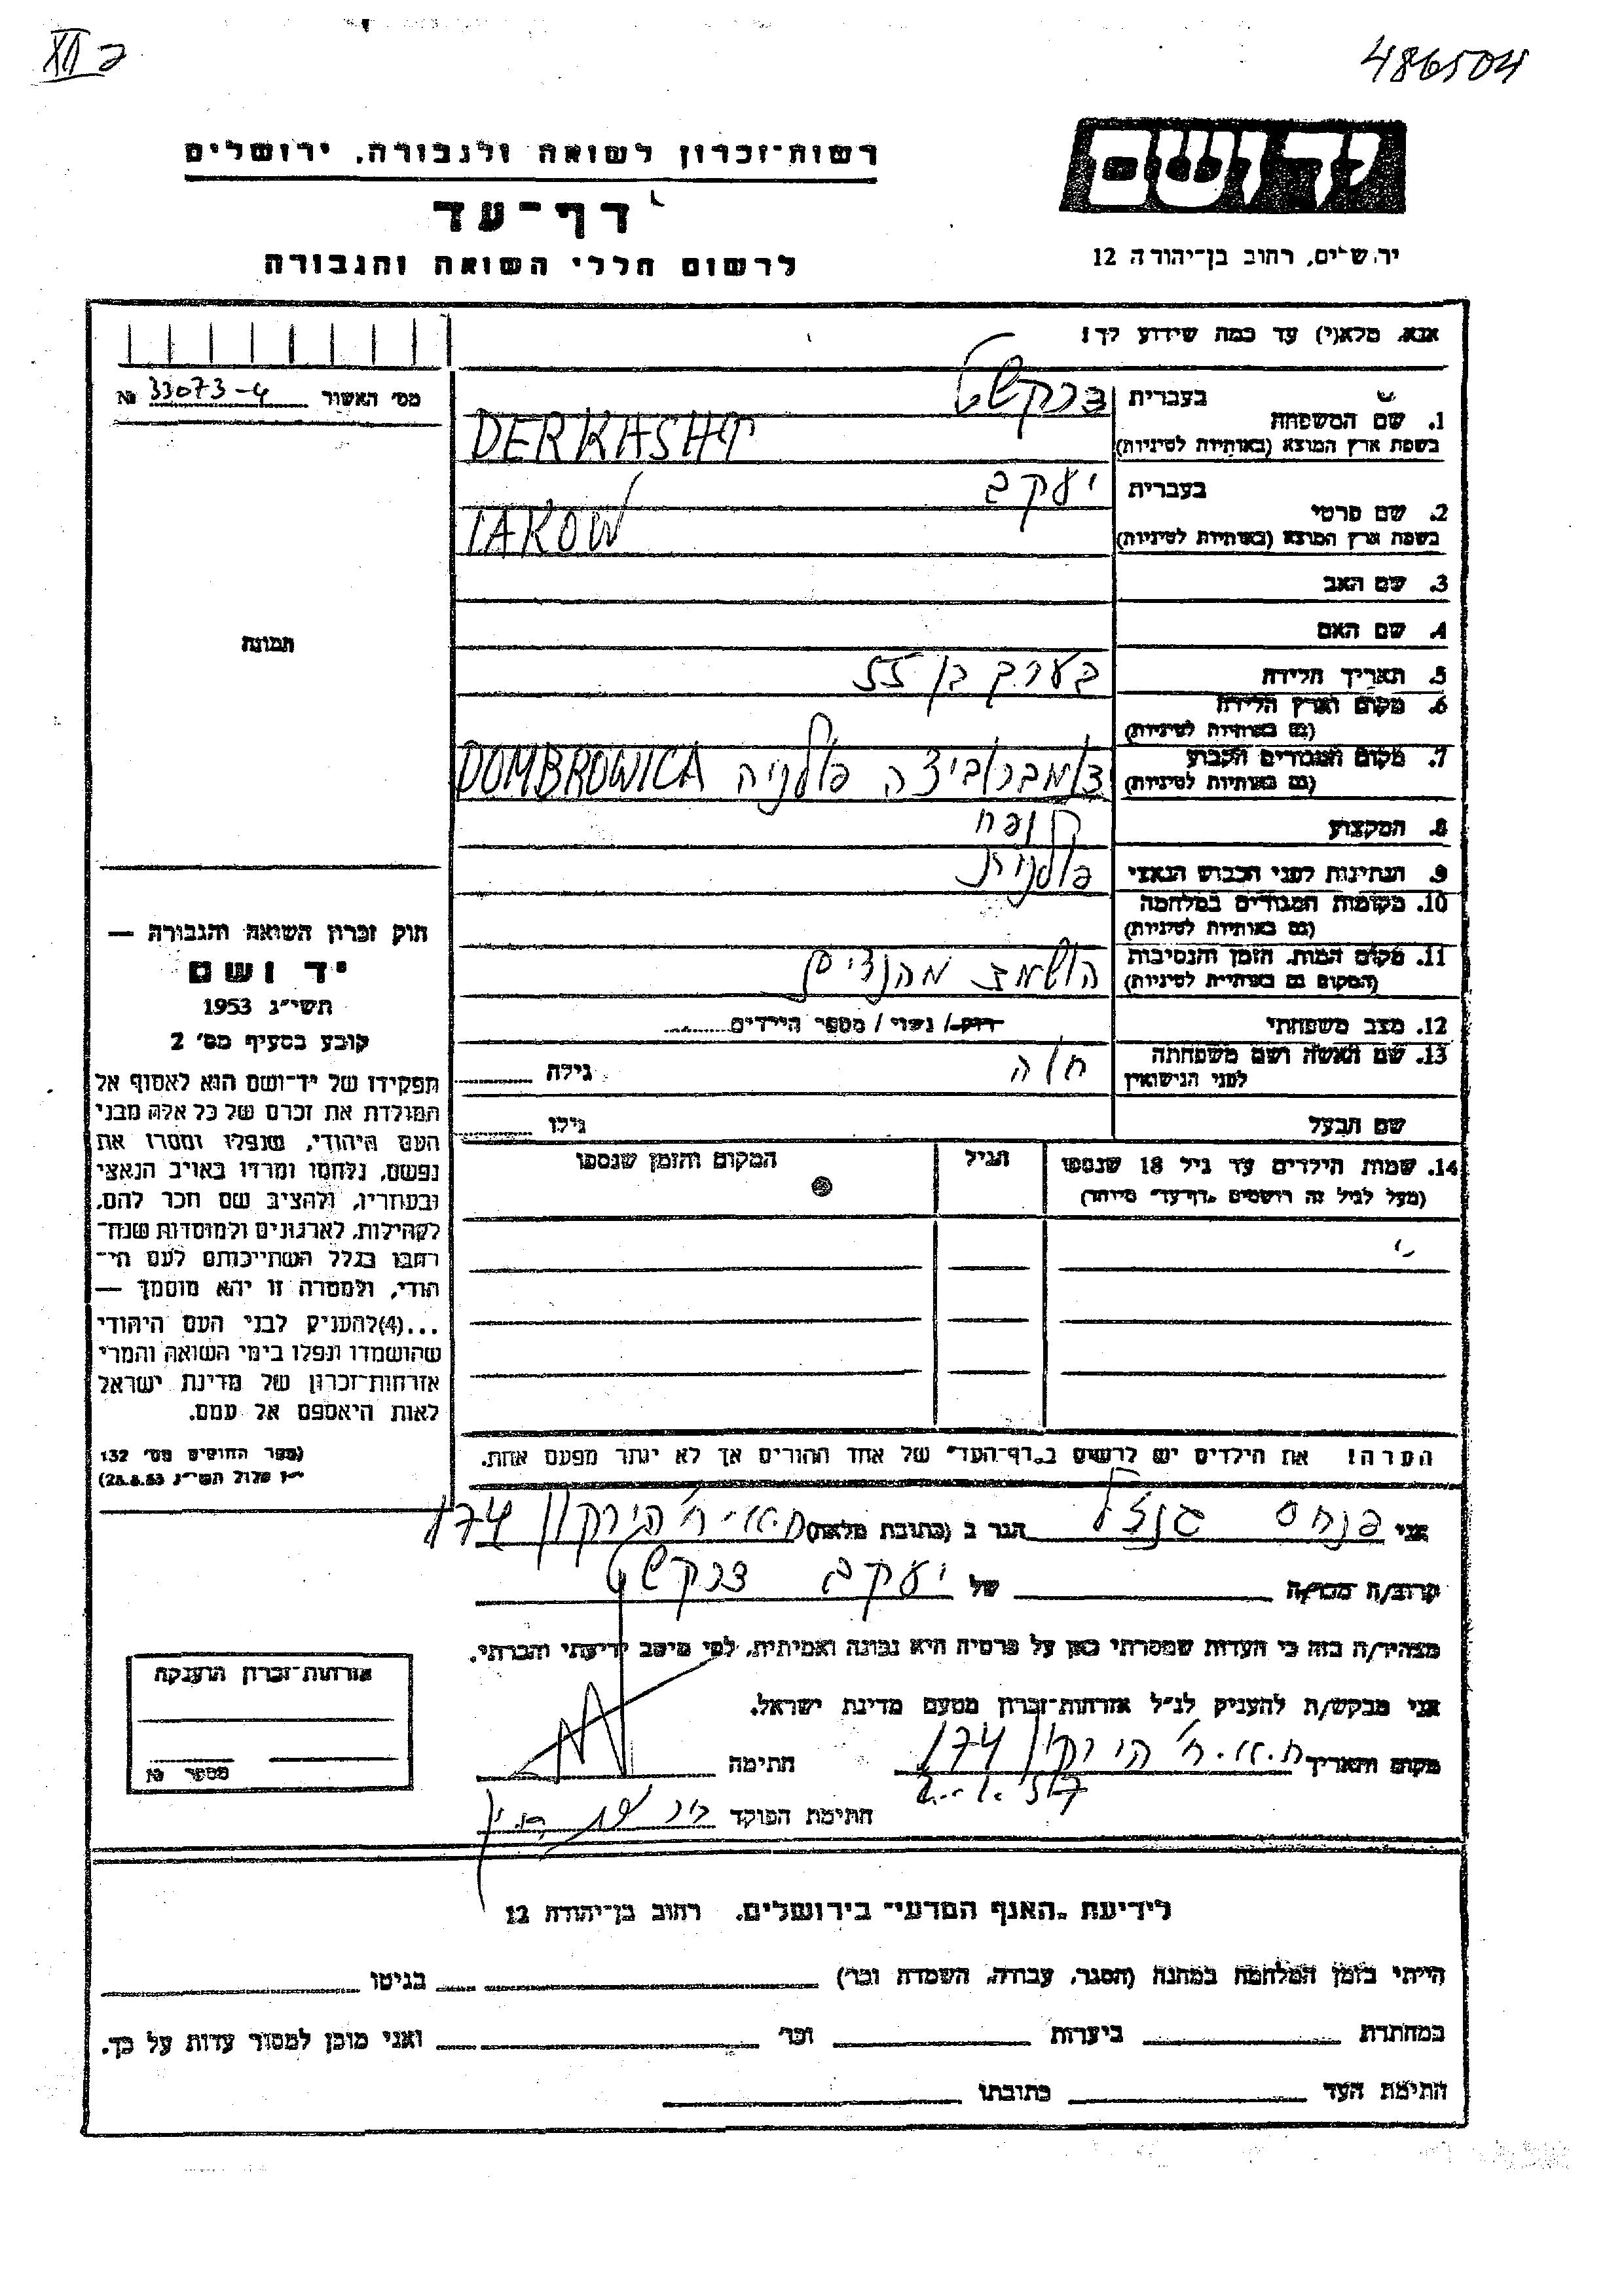 486504
XII 2
יד ושם
רשות-זכרון לשואה ולגבורה, ירושלים
דף-עד
ירושלים, רחוב בן-יהודה 12
לרשום חללי השואה והגבורה
אנא, מלא(י) עד כמה שידוע לך!
מס׳ האשור 33073-4 №
בעברית דרקשט
1. שם המשפחה
בשפת ארץ המוצא (באותיות לטיניות) DERKASHT
בעברית יעקב
2. שם פרטי
בשפת ארץ המוצא (באותיות לטיניות) IAKOW
3. שם האב
4. שם האם
תמונה
5. תאריך הלידה בערך בן 55
6. מקום וארץ הלידה
(גם באותיות לטיניות)
7. מקום המגורים הקבוע
(גם באותיות לטיניות) דומברוביצה פולניה DOMBROWICA
8. המקצוע
9. הנתינות לפני הכבוש הנאצי פולנית
10. מקומות המגורים במלחמה
(גם באותיות לטיניות)
11. מקום המות, הזמן והנסיבות
(המקום גם באותיות לטיניות) הושמד
12. מצב משפחתי רווק / נשוי / מספר הילדים
13. שם האשה ושם משפחתה
לפני הנישואין חוה גילה
שם הבעל גילו
14. שמות הילדים עד גיל 18 שנספו הגיל המקום והזמן שנספו
(מעל לגיל זה רושמים "דף-עד" מיוחד)
חוק זכרון השואה והגבורה —
יד ושם
תשי״ג 1953
קובע בסעיף מס׳ 2
תפקידו של יד-ושם הוא לאסוף אל
המולדת את זכרם של כל אלה מבני
העם היהודי, שנפלו ומסרו את
נפשם, נלחמו ומרדו באויב הנאצי
ובעוזריו, ולהציב שם וזכר להם,
לקהילות, לארגונים ולמוסדות שנח-
רבו בגלל השתייכותם לעם הי-
הודי, ולמטרה זו יהא מוסמך —
...(4)להעניק לבני העם היהודי
שהושמדו ונפלו בימי השואה והמרי
אזרחות-זכרון של מדינת ישראל
לאות היאספם אל עמם.
(ספר החוקים מס׳ 132
י״ז אלול תשי״ג 28.8.53)
הערה! את הילדים יש לרשום ב"דף-העד" של אחד ההורים אך לא יותר מפעם אחת.
אני פנחס הגר ב (כתובת מלאה) ת.א. ר׳ הירקון 174
קרוב/ה מכר/ה של יעקב דרקשט
מצהיר/ה בזה כי העדות שמסרתי כאן על פרטיה היא נכונה ואמיתית, לפי מיטב ידיעתי והכרתי.
אני מבקש/ת להעניק לנ״ל אזרחות-זכרון מטעם מדינת ישראל.
מקום ותאריך ת.א. ר׳ הירקון 174 חתימה
2.1.57
חתימת הפוקד
אזרחות-זכרון הוענקה
מספר №
לידיעת "האגף המדעי" בירושלים, רחוב בן-יהודה 12
הייתי בזמן המלחמה במחנה (הסגר, עבודה, השמדה וכו׳) בגיטו
במחתרת ביערות וכו׳ ואני מוכן למסור עדות על כך.
חתימת העד כתובתו